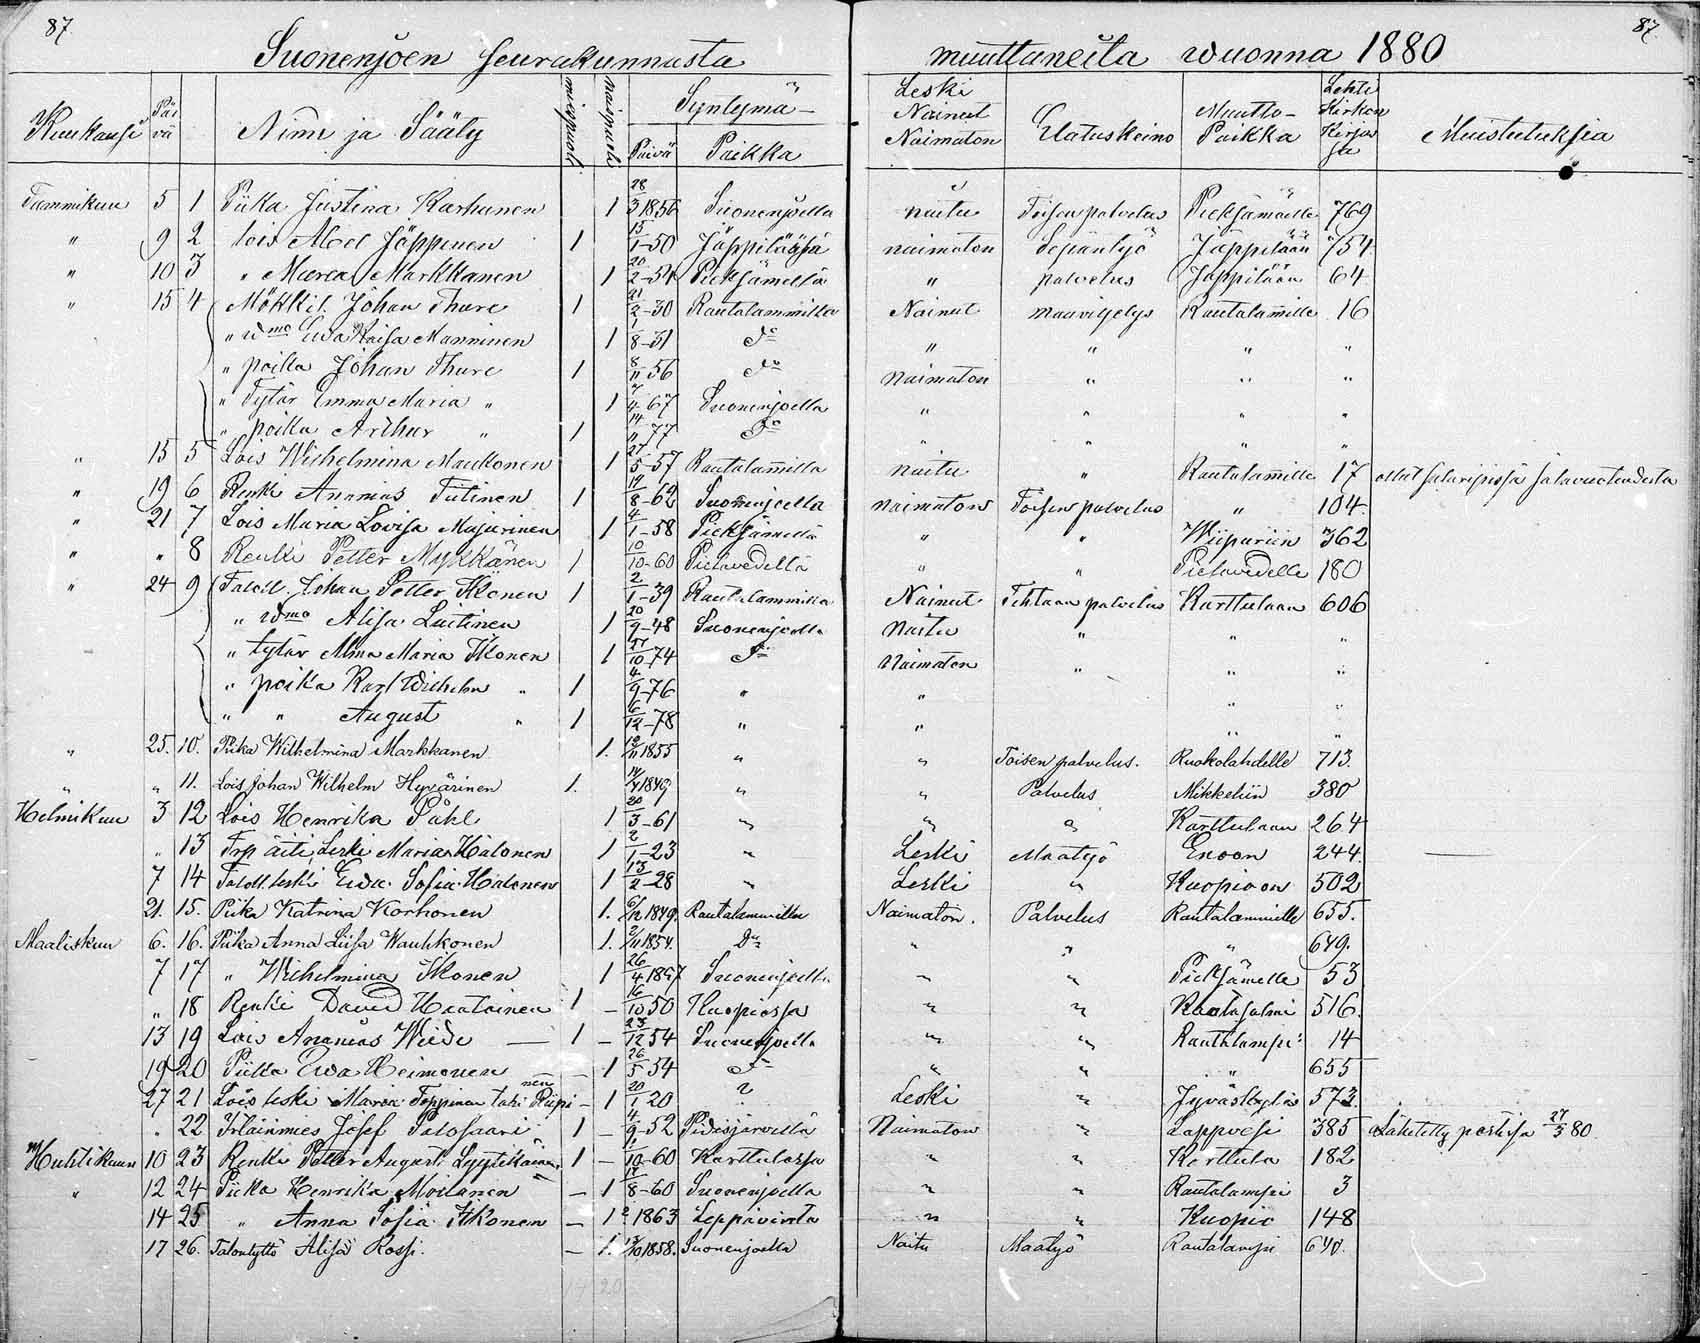 87. 87
Suonenjoen seurakunnasta muuttaneita wuonna 1880
Kuukausi Päivä Nimi ja Sääty miespuoli naispuoli Syntymä- Päivä Paikka Leski Nainut Naimaton Elatuskeino Muutto-Paikka Lehti Kirkon Kirjassa Muistutuksia
Tammikuu 5 1 Piika Justina Karhunen 1 28/3 1856 Suonenjoella naitu Toisen palvelus Pieksämäelle 769
" 9 2 lois Abel Jäppinen 1 15/1-50 Jäppilässä naimaton Sepäntyö Jäppilään 754
" 10 3 " Maria Markkanen 1 20/2-54 Pieksämellä " palvelus Jäppilään 64
" 15 4 Mökkil. Johan Thure 1 21/2-30 Rautalammilla Nainut maaviljelys Rautalamille 16
" vmo Ewa Kaisa Manninen 1 1/8-31 Do " " " "
" poika Johan Thure 1 8/11 56 Do naimaton " " "
" Tytär Emma Maria " 1 7/4-67 Suonenjoella " " " "
" poika Arthur " 1 14/11 77 Do " " " "
" 15 5 Lois Wilhelmina Maukonen 1 27/5-57 Rautalamilla naitu " Rautalamille 17
" 19 6 Renki Ananias Tiitinen 1 19/8-62 Suonenjoella naimaton Toisen palvelus " 104
" 21 7 Lois Maria Lovisa Majurinen 1 4/1-58 Pieksämellä " " Wiipuriin 362
" " 8 Renki Petter Mykkänen 1 10/10-60 Pielavedellä " " Pielavedelle 180
" 24 9 Taloll. Johan Petter Ikonen 1 2/1-39 Rautalammilla Nainut Tehtaan palvelus Karttulaan 606
" vmo Alisa Luitinen 1 20/9-48 Suonenjoella Naitu " " "
" tytär Alma Maria Ikonen 1 27/10-74 Do Naimaton " " "
" poika Karl Wilhelm " 1 4/9-76 " " " "
" " August " 1 6/12-78 " " " "
" 25. 10. Piika Wilhelmina Markkanen 1. 12/11 1855 " " Toisen palvelus. Ruokolahdelle 713.
" " 11. Lois Johan Wilhelm Hyvärinen 1. 14/4 1849 " " Palvelus Mikkeliin 380
Helmikuu 3 12 Lois Henrika Påhl 1 20/3-61 " " " Karttulaan 264
" 13 Trp äiti Leski Maria Halonen 1 2/1-23 " Leski Maatyö Enoon 244
7 14 Taloll. leski Ewa Sofia Halonen 1 13/2-28 " Leski " Kuopioon 502
21. 15. Piika Katrina Korhonen 1. 6/12 1849. Rautalammilla Naimaton. Palvelus Rautalammille 655.
Maaliskuu 6. 16. Piika Anna Liisa Wauhkonen 1. 2/11 1854. Do " " " 649.
7 17 " Wilhelmina Ikonen 1 26/4 1857 Suonenjoella " " Pieksämelle 53
" 18 Renki David Haatainen 1 – 16/10 50 Kuopiossa " " Rantasalmi 516
13 19 Lois Ananias Wiide – 1 – 23/12 54 Suonenjoella " " Rautalampi 14
19 20 Piika Ewa Heimonen – 1 26/5 54 Do " " " 655
27 21 Lois leski Maria Toppinen tahi Riipinen – 1 20/1 20 " Leski " Jyväskylä 573
" 22 Irtainmies Josef Palosaari 1 – 4/9-52 Pidisjärvellä Naimaton " Lappvesi 385 Lähetetty postissa 27/3 80.
Huhtikuun 10 23 Renki Petter August Lyytikäinen 1 – 1/10-60 Karttulassa " " Karttula 182
" 12 24 Piika Henrika Moilanen – 1 17/8-60 Suonenjoella " " Rautalampi 3
14 25 " Anna Sofia Ikonen – 1 1863 Leppävirta " " Kuopio 148
17 26. Talontyttö Alisa Rossi. – 1. 1858. Suonenjoella Naitu Maatyö Rautalampi 640.